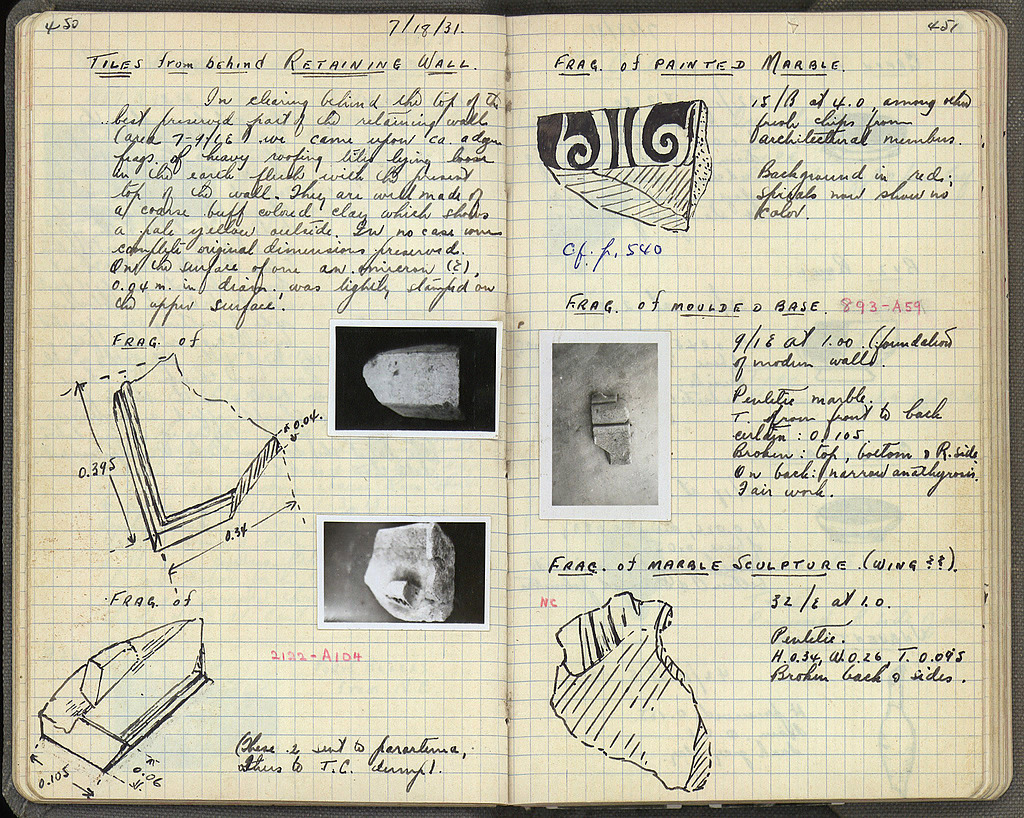 450
7/18/31.
TILES from behind RETAINING WALL.
In clearing behind the top of the
best preserved part of the retaining wall
(area 7-9/ΙΕ) we came upon ca. a dozen
frags. of heavy roofing tiles lying loose
in the earth flush with the present
top of the wall. They are well made of
a coarse buff colored clay which shows
a pale yellow outside. In no case were
complete original dimensions preserved.
On the surface of one an omicron (?),
0.04 m. in diam., was lightly stamped on
the upper surface.
FRAG. of
0.04.
0.395
0.34
FRAG. of
2122-A104
0.105
0.06
(These 2 sent to
thus to T.C. dump).
451
FRAG. of PAINTED MARBLE.
15/Β at 4.0, among other
fresh chips from
architectural members.
Background in red;
spirals now show no
color.
Cf. p. 540
FRAG. of MOULDED BASE. 893-A59
9/ΙΕ at 1.00. (foundation
of modern wall).
Pentelic marble.
T. from front to back
certain: 0.105
Broken: top, bottom & R. side
On back: narrow anathyrosis.
Fair work.
FRAG. of MARBLE SCULPTURE. (WING ??).
NC
32/Ε at 1.0.
Pentelic.
H. 0.34, W. 0.26, T. 0.095
Broken back & sides.